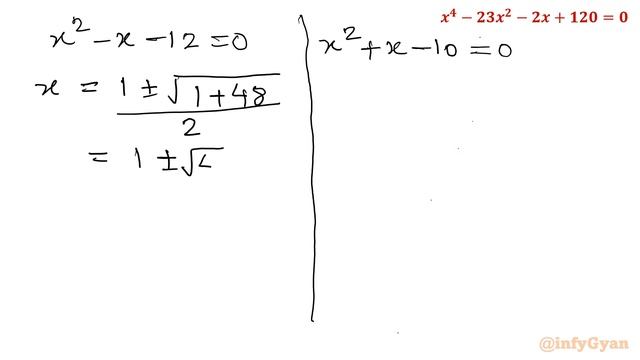 x⁴ − 23x² − 2x + 120 = 0
x² − x − 12 = 0
x = (1 ± √(1 + 48)) / 2
= 1 ± √4
x² + x − 10 = 0
@infyGyan